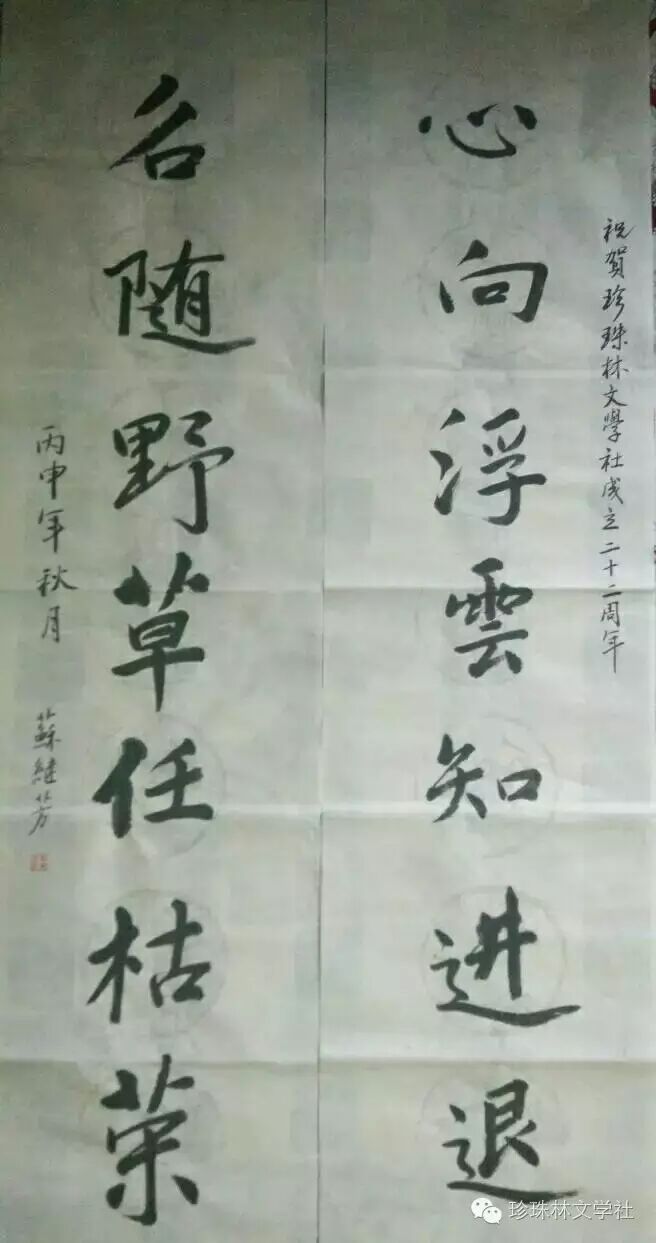 祝賀珍珠林文學社成立二十二周年
心向浮雲知进退
名随野草任枯荣
丙申年秋月
蘇維芳
珍珠林文学社